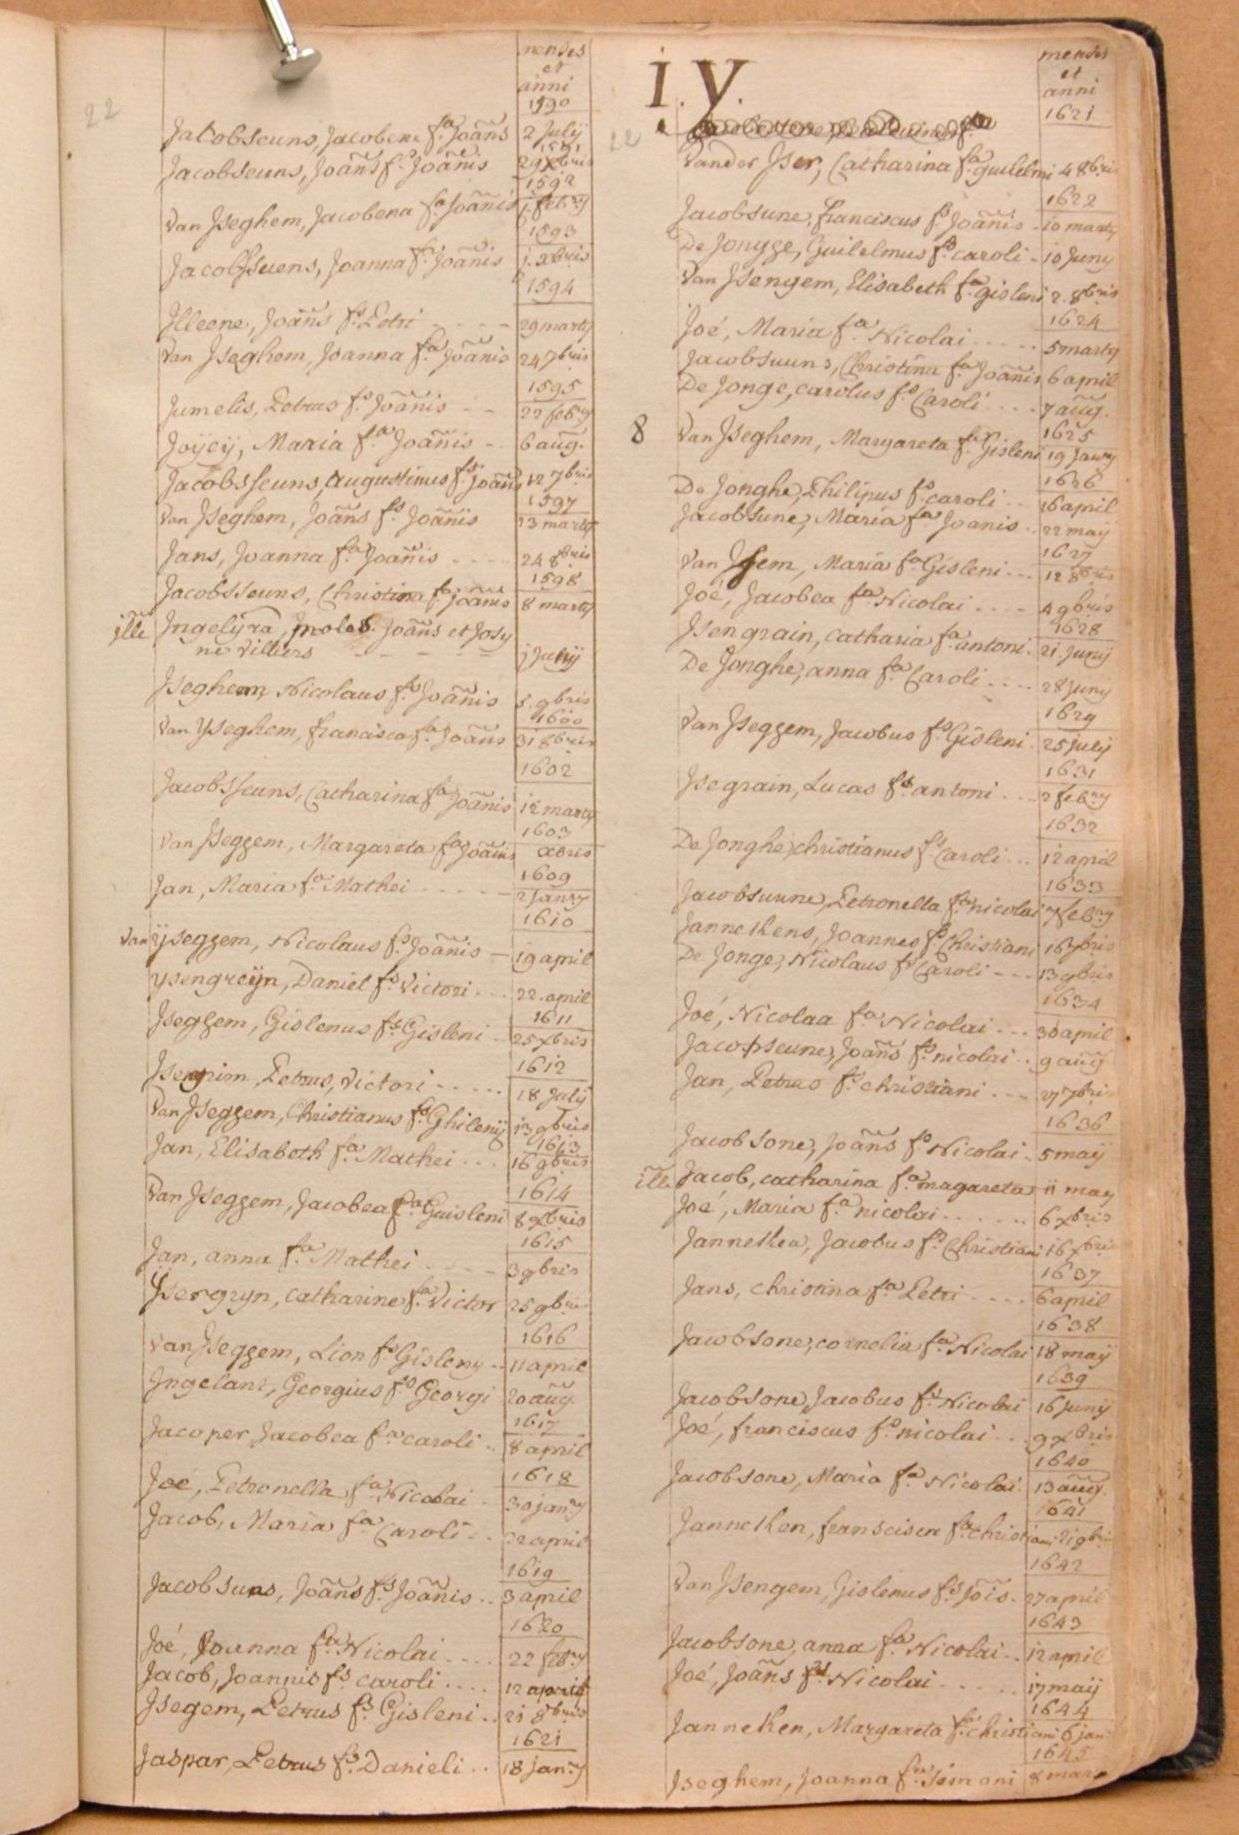 22
menses
et
anni
1590
Jacobseuns, Jacobena fa. Joãnis 2 July
1591
Jacobseuns, Joãns fs. Joãnis 29 xbris
1592
Van Jseghem, Jacobena fa Joãnis j. feb:ry
1593
Jacobsseuns, Joanna fa. Joãnis j. xbris
1594
Jlleene, Joãns fs. Petri - - - - 29 marty
Van Jseghem, Joanna fa. Joãnis 24 7bris
1595
Jumelis, Petrus fs. Joãnis - - 22 feb:ry
Joyey, Maria fa. Joãnis - - 6 aug.
Jacobsseuns, augustinus fs. Joãnis 12 7bris
1597
Van Jseghem, Joãns fs. Joãnis 23 marty
Jans, Joanna fa. Joãnis - - - - 24 8bris
1598
Jacobsseuns, Christina fa Joãnis 8 marty
jlle Jngelyra, proles Joãns et Josy
ne villers - - - - - j Julij
Jseghem, Nicolaus fs. Joãnis 5 9bris
1600
Van Yseghem, francisca fa. Joãnis 31 8bris
1602
Jacobsseuns, Catharina fa Joãnis 12 marty
1603
Van Jseggem, Margareta fa Joãnis xbris
1609
Jan, Maria fa. Mathei - - - - - 2 Jan:ry
1610
Van ijseggem, Nicolaus fs. Joãnis - 19 april
ysengreijn, Daniel fs. Victori - - - 22 april
1611
Jseggem, Gislenus fs. Gisleni - - 25 xbris
1612
Jsengrim, Petrus, Victori - - - - - 18 July
Van Jseggem, Christianus fs. Ghilenij 13 9bris
1613
Jan, Elisabeth fa. Mathei - - - 16 9bris
1614
Van Jseggem, Jacobea fa. Guisleni 8 xbris
1615
Jan, anna fa. Mathei - - - - 3 9bris
Jsergryn, catharine fa. Victor 25 9bris
1616
Van Jseggem, Lion fs. Gisleny - - 11 april
Jngelant, Georgius fs Georgi 20 aug
1617
Jacoper, Jacobea fa. caroli - - 8 april
1618
Joé, Petronella fa. Nicolai - 30 jan:ry
Jacob, Maria fa Caroli - - 22 april
1619
Jacobsuns, Joãns fs. Joãnis - - 3 april
1620
Joé, Joanna fa. Nicolai - - - - 22 feb:ry
Jacob, Joannis fs caroli - - - - 12 april
Jsegem, Petrus fs. Gisleni - - 21 8bris
1621
Jaspar, Petrus fs. Danieli - - 18 jan:ry
i. y.
menses
et
anni
1621
22
Vander Jser, Catharina fa. guilelmi 4 8bris
1622
Jacobsune, franciscus fs Joãnis - 10 marty
De Jongge, Guilelmus fs. caroli - 10 Juny
Van Jsengem, Elisabeth fa. gisleni 2. 8bris
1624
Joé, Maria fa. Nicolai - - - - - 5 marty
Jacobsuuns, Christina fa. Joãnis 6 april
De Jonge, carolus fs Caroli - - - - 7 aug.
1625
8 Van Jseghem, Margareta fa. Gisleni 19 Jan:ry
1626
De Jonghe, Philipus fs. caroli - - 16 april
Jacobsune, Maria fa Joanis - - 22 maij
1627
Van Jsem, Maria fa Gisleni - - - 12 8bris
Joé, Jacobea fa. Nicolai - - - - 4 9bris
1628
Jsengrain, catharia fa. antoni - 21 Junij
De Jonghe, anna fa. Caroli - - - - 28 Junij
1629
Van Jseggem, Jacobus fs Gisleni - 25 July
1631
Jsegrain, Lucas fs. antoni - - - 2 feb:ry
1632
De Jonghe, christianus fs Caroli - - 12 april
1633
Jacobsuune, Petronella fa nicolai 7 feb:ry
Jannekens, Joannes fs. Christiani 16 7bris
De Jonge, Nicolaus fs Caroli - - - 13 9bris
1634
Joé, Nicolaa fa. Nicolai - - - 30 april
Jacobseune, Joãns fs. nicolai - - 9 aug
Jan, Petrus fs. christiani - - - 27 7bris
1636
Jacobsone, Joãns fs Nicolai - 5 maij
jlle Jacob, catharina fa. magareta - 11 may
Joé, Maria fa. nicolai - - - - - - 6 xbris
Janneken, Jacobus fs. Christiani 16 xbris
1637
Jans, christina fa Petri - - - - - 6 april
1638
Jacobsone, cornelia fa. Nicolai 18 maij
1639
Jacobsone, Jacobus fs. Nicolai 16 Junij
Joé, franciscus fs. nicolai - - - 9 xbris
1640
Jacobsone, Maria fa. Nicolai 13 aug.
1641
Janneken, franscisca fa. christiani 21 9bris
1642
Van Jsengem, Gislenus fs. Jois. 27 april
1643
Jacobsone, anna fa. Nicolai - - 12 april
Joé, Joãns fs. Nicolai - - - - - - 17 maij
1644
Janneken, Margareta fa. christiani 6 jan
1645
Jseghem, Joanna fa. Simoni 8 mars